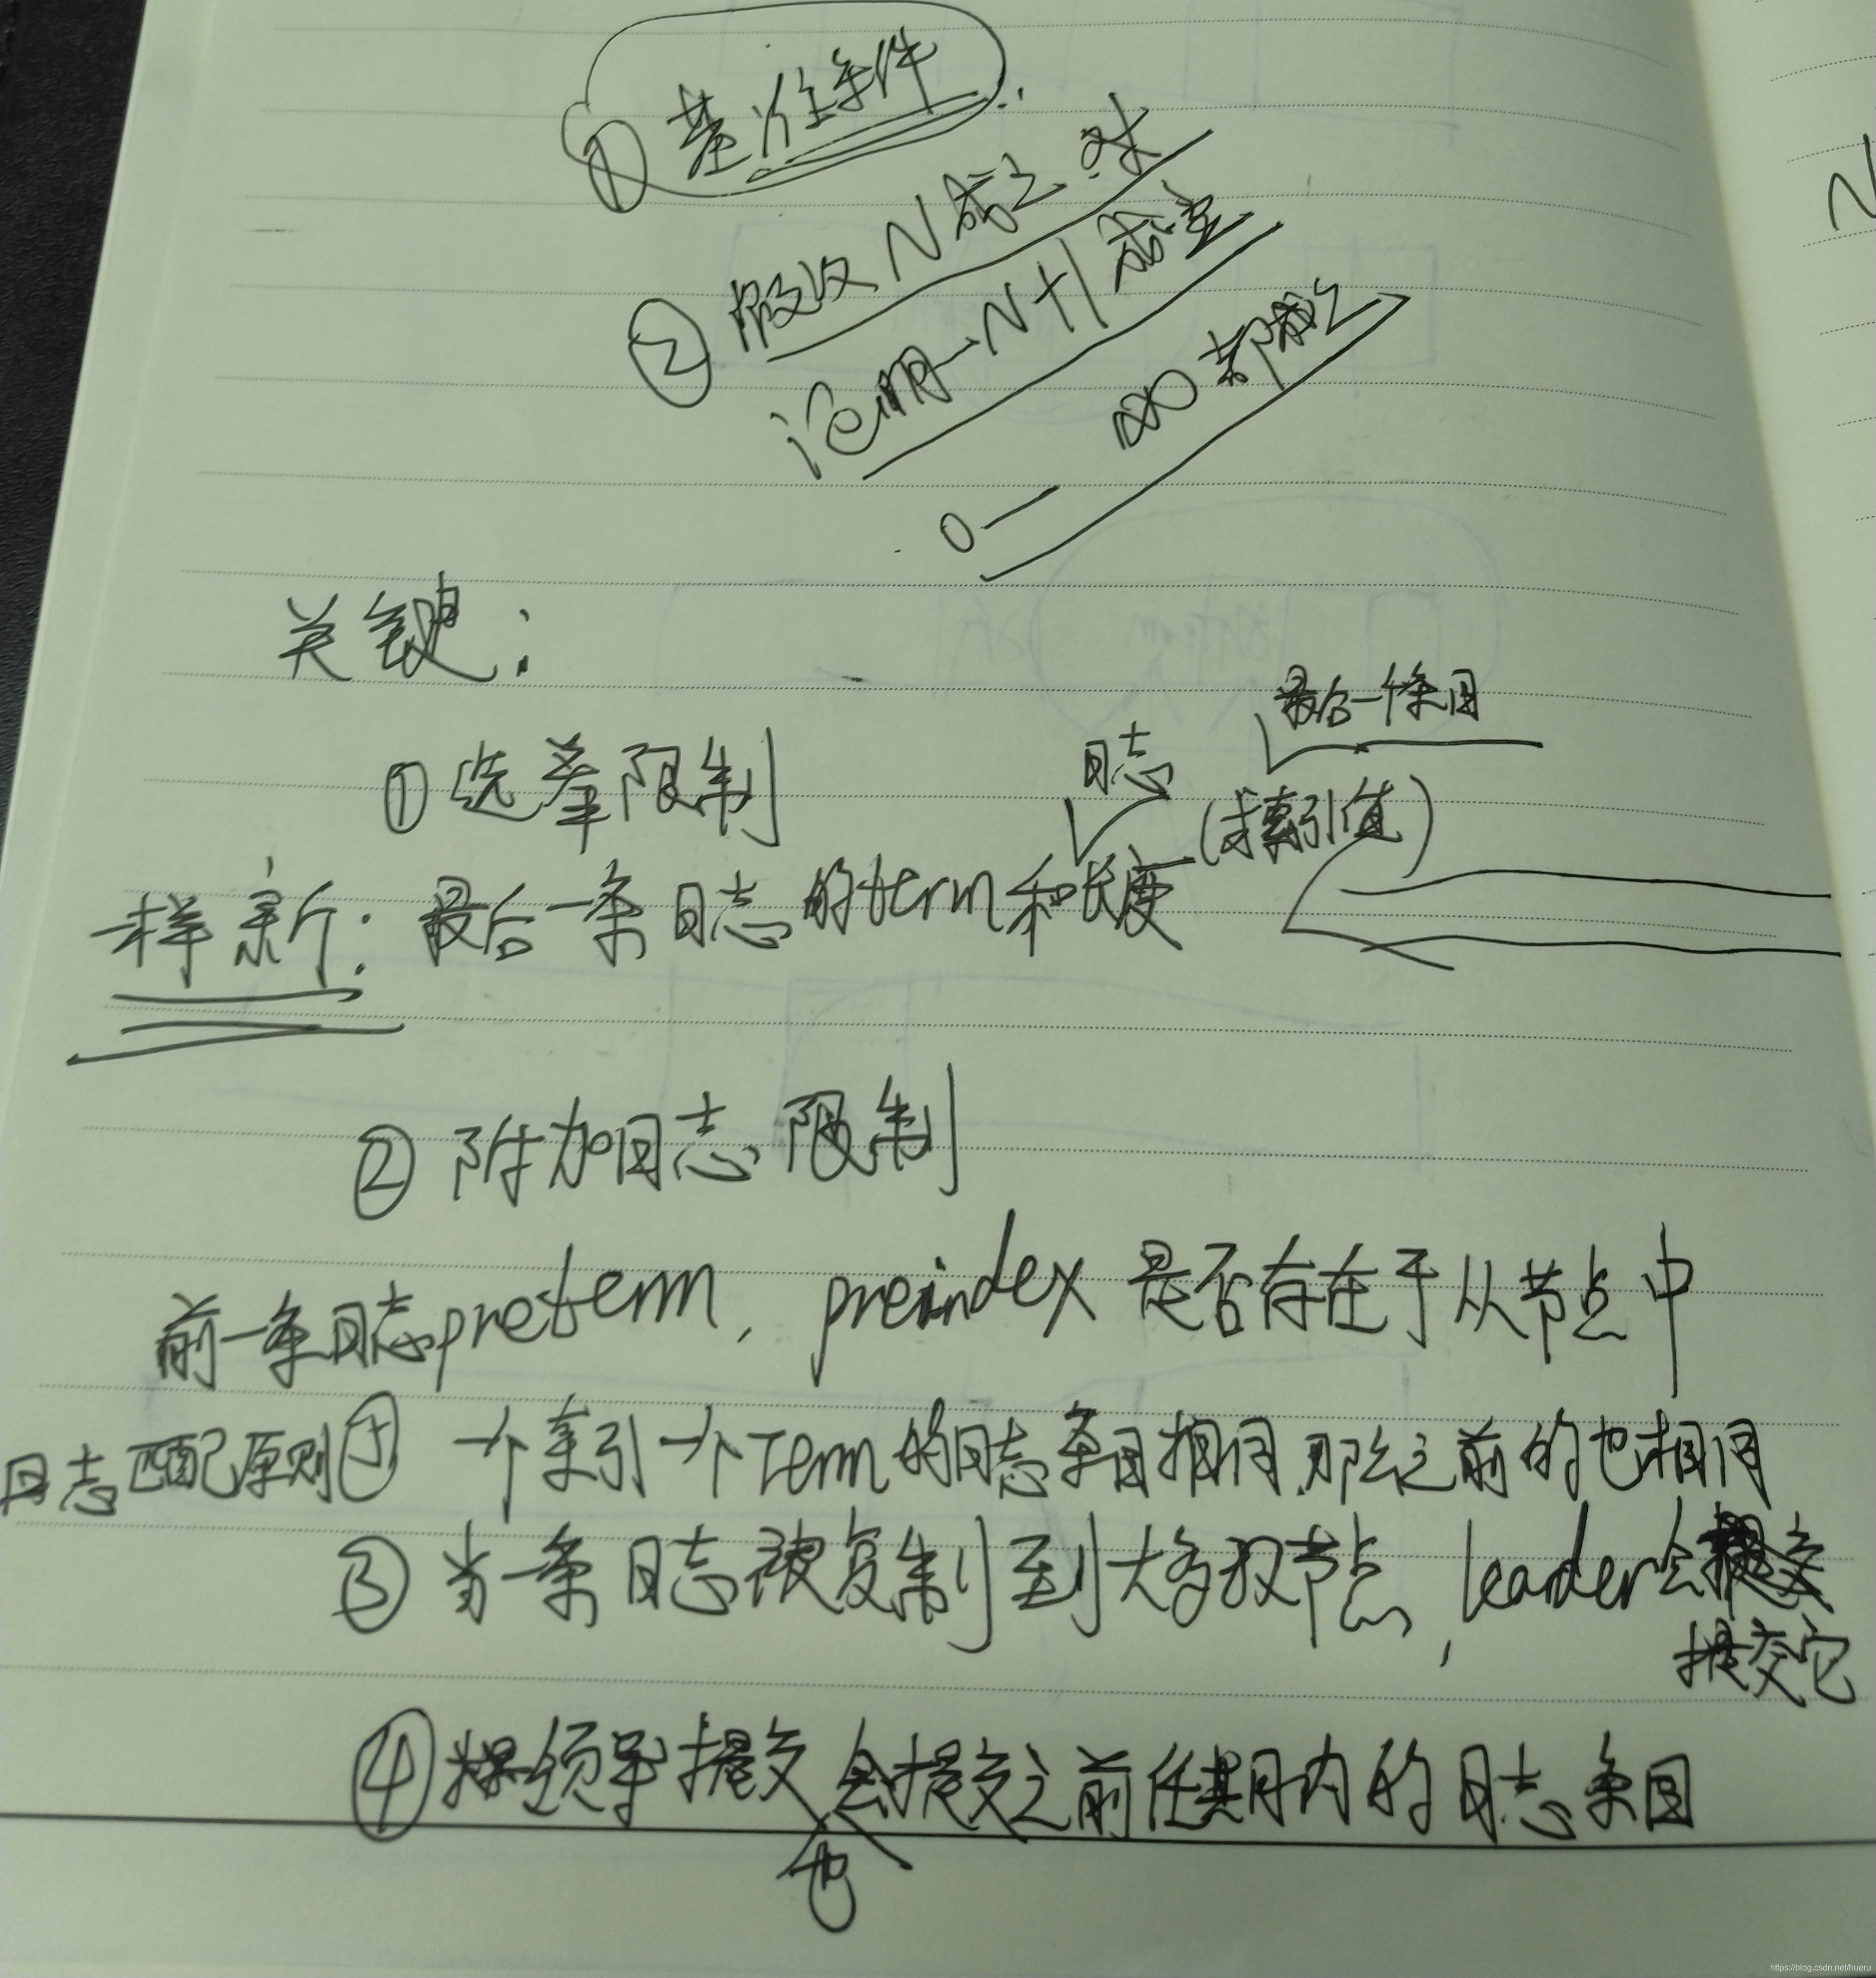 ① 基准条件
② 假设N成立时
证明→N+1成立
0— ∞都成立
关键：
① 选举限制
日志
最后一个条目
(或索引值)
一样新：最后一条日志的term和长度
② 附加日志限制
前一条日志preterm，preindex是否存在于从节点中
日志匹配原则 一个索引一个Term的日志条目相同，那么之前的也相同
③ 当一条日志被复制到大多数节点，leader会
提交它
④ 领导提交会提交之前任期内的日志条目
也
N
https://blog.csdn.net/hueru